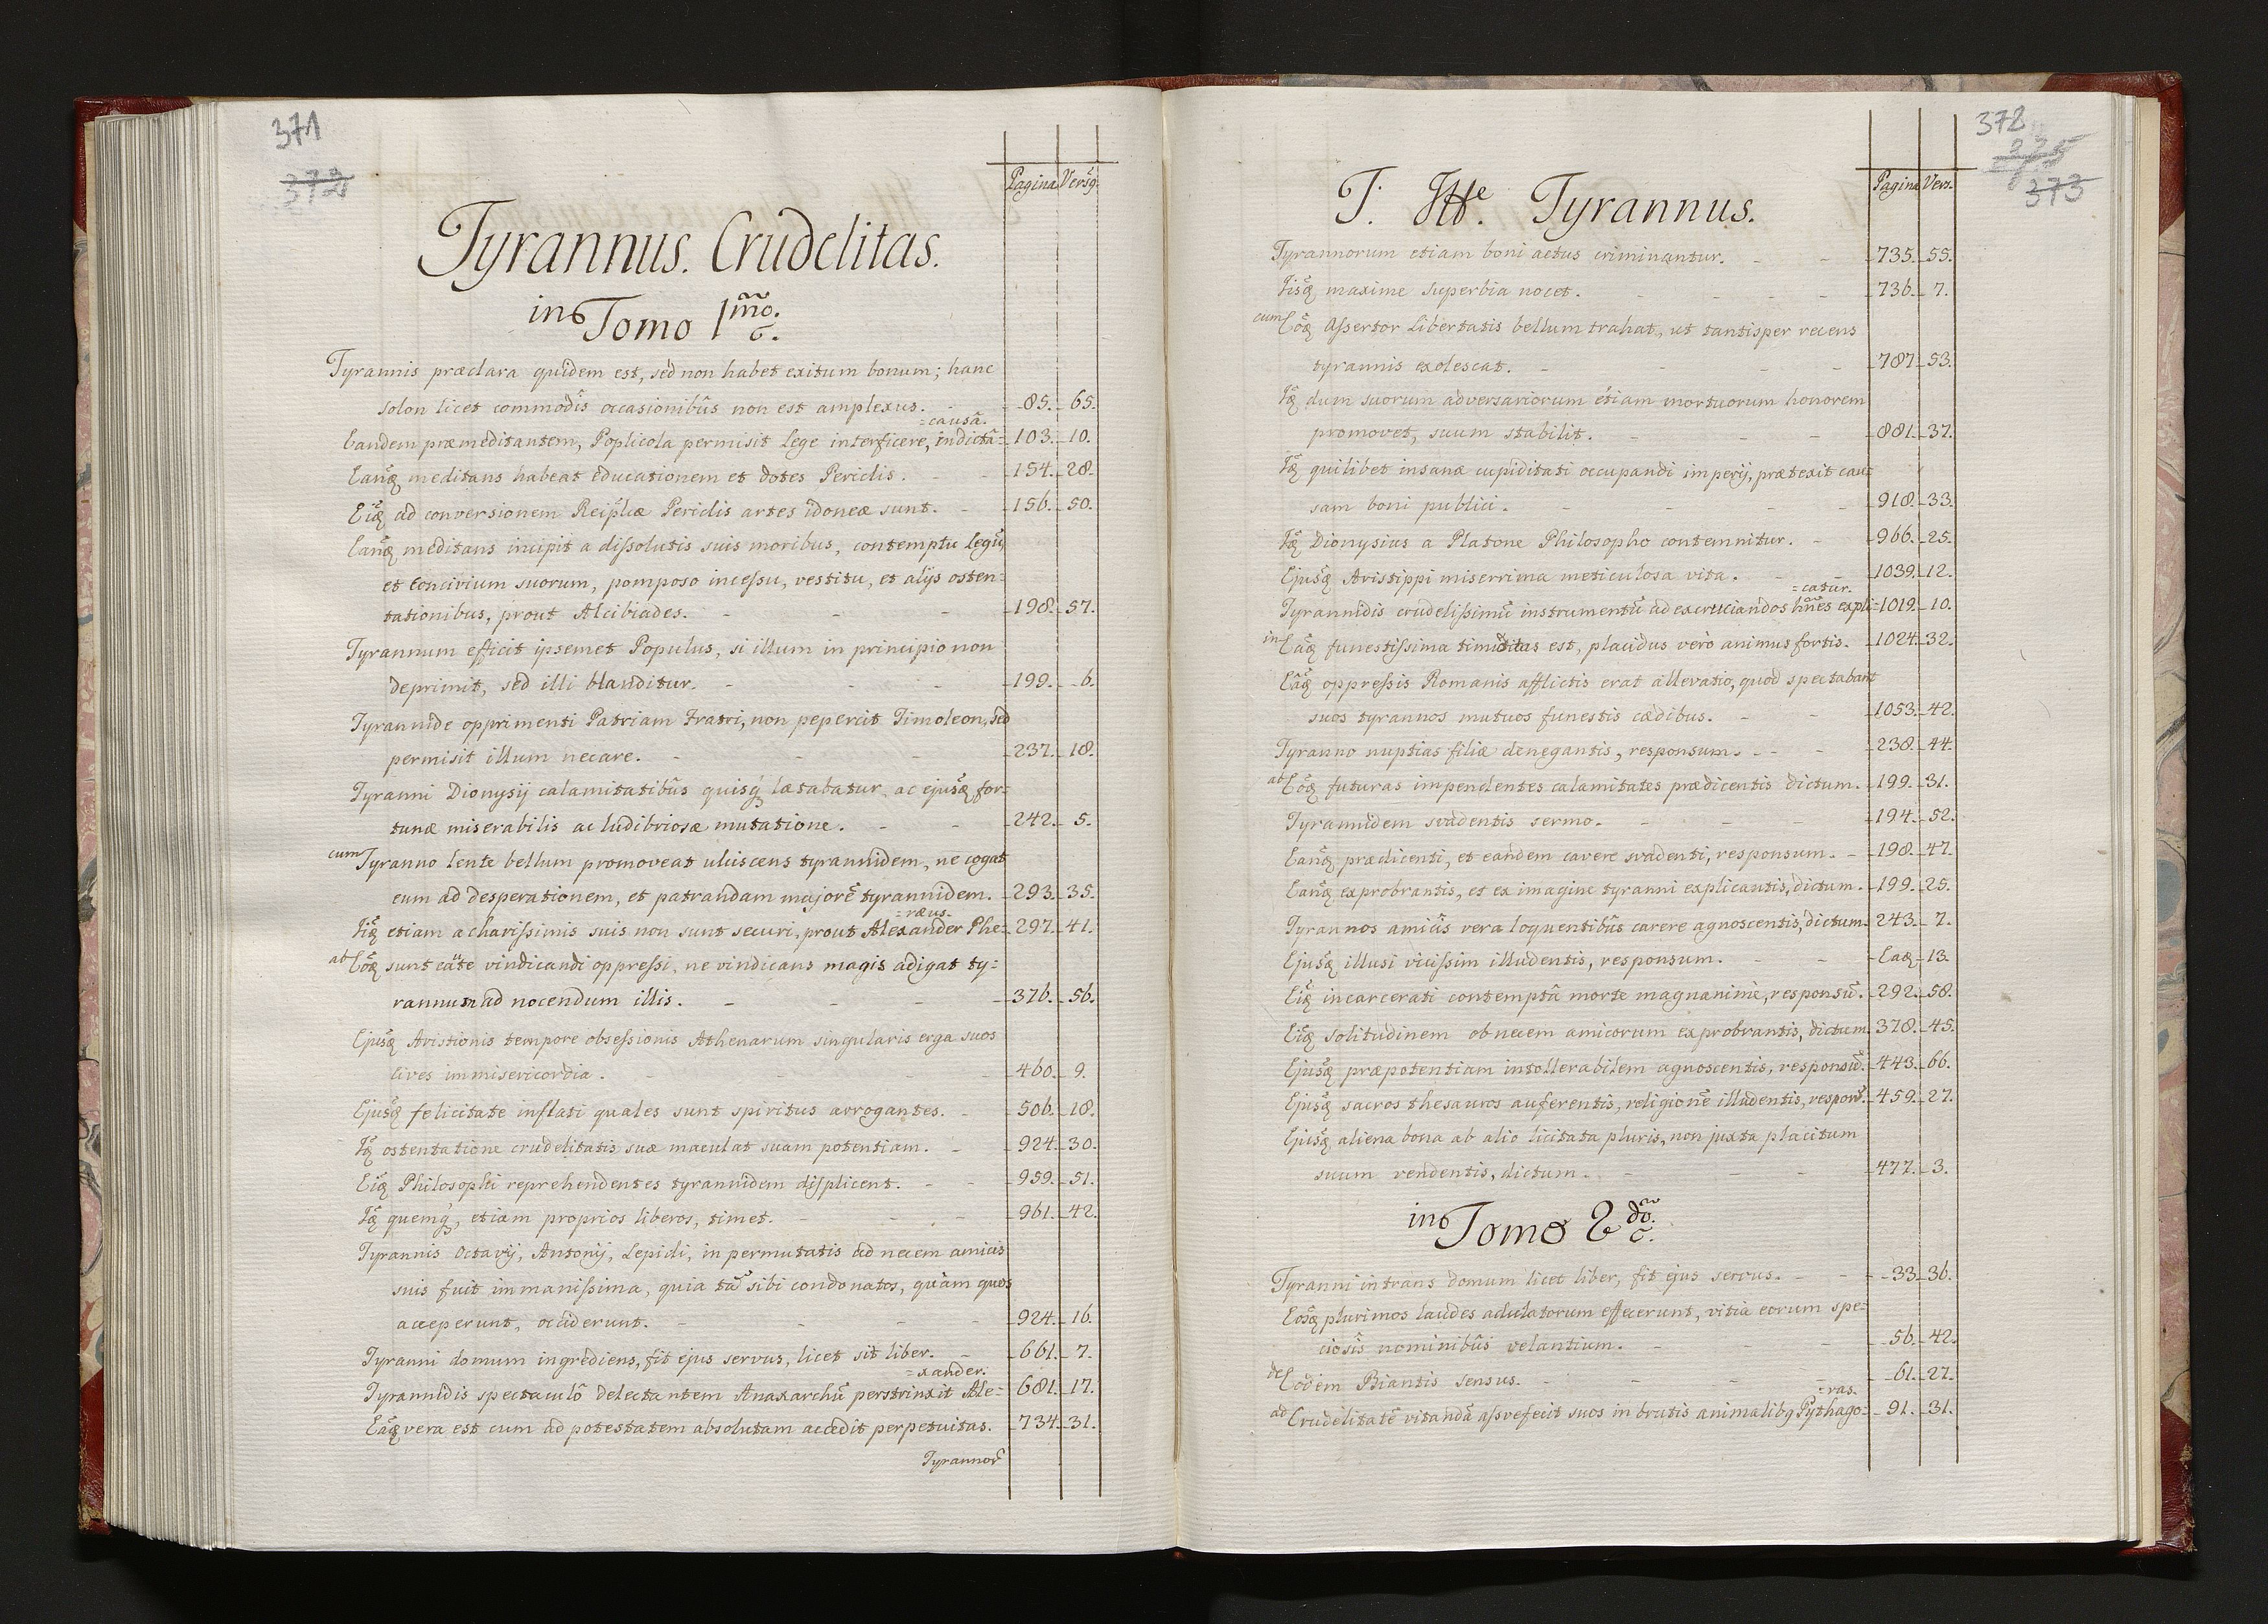 371
372
Pagina Versq.
Tyrannus. Crudelitas.
in Tomo 1mo.
Tyrannis præclara quidem est, sed non habet exitum bonum; hanc
Solon licet commodis occasionibus non est amplexus. 85. 65.
=causâ.
Eandem præmeditantem, Poplicola permisit lege interficere, indictâ= 103. 10.
meditans habeat educationem et dotes Periclis. 154. 28.
ad conversionem Reiplæ Periclis artes idoneæ sunt. 156. 50.
meditans incipit a dissolutis suis moribus, contemptu legũ,
et Concivium suorum, pomposo incessu, vestitu, et alijs osten=
tationibus, prout Alcibiades. 198. 57.
Tyrannum efficit ipsemet Populus, si illum in principio non
deprimit, sed illi blanditur. 199. 6.
Tyrannide opprimenti Patriam Fratri, non pepercit Timoleon, sed
permisit illum necare. 237. 18.
Tyranni Dionysij calamitatibûs quisq́ lætabatur, ac ejusq̃ for=
tunæ miserabilis ac ludibriosæ mutatione. 242. 5.
cum Tyranno lente bellum promoveat ulciscens tyrannidem, ne cogat
eum ad desperationem, et patrandam majorẽ tyrannidem. 293. 35.
=ræus.
etiam a charissimis suis non sunt securi, prout Alexander Phe= 297. 41.
ab Eõq̃ sunt cäte vindicandi oppressi, ne vindicans magis adigat ty=
rannum ad nocendum illis. 376. 56.
Ejusq̃ Aristionis tempore obsessionis Athenarum singularis erga suos
cives immisericordia. 460. 9.
Ejusq̃ felicitate inflati quales sunt spiritus arrogantes. 506. 18.
ostentatione crudelitatis suæ maculat suam potentiam. 924. 30.
Philosophi reprehendentes tyrannidem displicent. 959. 51.
quemq́, etiam proprios liberos, timet. 961. 42.
Tyrannis Octavij, Antonij, Lepidi, in permutatis ad necem amicis
suis fuit immanissima, quia tã sibi condonatos, quàm quos
acceperunt, occiderunt. 924. 16.
Tyranni domum ingrediens, fit ejus servus, licet sit liber. 661. 7.
=xander.
Tyrannidis spectaculô delectantem Anaxarchũ perstrinxit Ale= 681. 17.
Eãq̃ vera est cum ad potestatem absolutam accedit perpetuitas. 734. 31.
Tyrannor̃
372
375
373
Pagina Vers.
T. Tyrannus.
Tyrannorum etiam boni actus criminantur. 735. 55.
maxime superbia nocet. 736. 7.
cum Eõq̃ Assertor Libertatis bellum trahat, ut tantisper recens
tyrannis exolescat. 787. 53.
dum suorum adversariorum etiam mortuorum honorem
promovet, suum stabilit. 881. 37.
quilibet insanæ cupiditati occupandi imperij, prætexit cau=
sam boni publici. 918. 33.
Dionysius a Platone Philosopho contemnitur. 966. 25.
Ejusq̃ Aristippi miserrima meticulosa vita. 1039. 12.
=catur.
Tyrannidis crudelissimũ instrumentũ ad excruciandos hñes expli= 1019. 10.
in Eãq̃ funestissima timiditas est, placidus verò animus fortis. 1024. 32.
Eãq̃ oppressis Romanis afflictis erat allevatio, quod spectabant
suos tyrannos mutuos funestis cædibus. 1053. 42.
Tyranno nuptias filiæ denegantis, responsum. 238. 44.
ab Eõq̃ futuras impendentes calamitates prædicentis dictum. 199. 31.
Tyrannidem svadentis sermo. 194. 52.
prædicenti, et eandem cavere svadenti, responsum. 198. 47.
exprobrantis, et ex imagine tyranni explicantis, dictum. 199. 25.
Tyrannos amicis vera loquentibûs carere agnoscentis, dictum. 243. 7.
Ejusq̃ illusi vicissim illudentis, responsum. Eaq̃ 13.
incarcerati contemptâ morte magnanimè, responsũ. 292. 58.
solitudinem ob necem amicorum exprobrantis, dictum. 378. 45.
Ejusq̃ præpotentiam intollerabilem agnoscentis, responsũ. 443. 66.
Ejusq̃ sacros thesauros auferentis, religionẽ illudentis, respons̃. 459. 27.
Ejusq̃ aliena bona ab alio licitata pluris, non juxta placitum
suum vendentis, dictum. 477. 3.
in Tomo 2do.
Tyranni intrans domum licet liber, fit ejus servus. 33. 36.
Eosq̃ plurimos laudes adulatorum effecerunt, vitia eorum spe=
ciosis nominibûs velantium. 56. 42.
de Eodem Biantis sensus. 61. 27.
=ras.
ad Crudelitatẽ vitandã assvefecit suos in brutis animalibq Pythago= 91. 31.